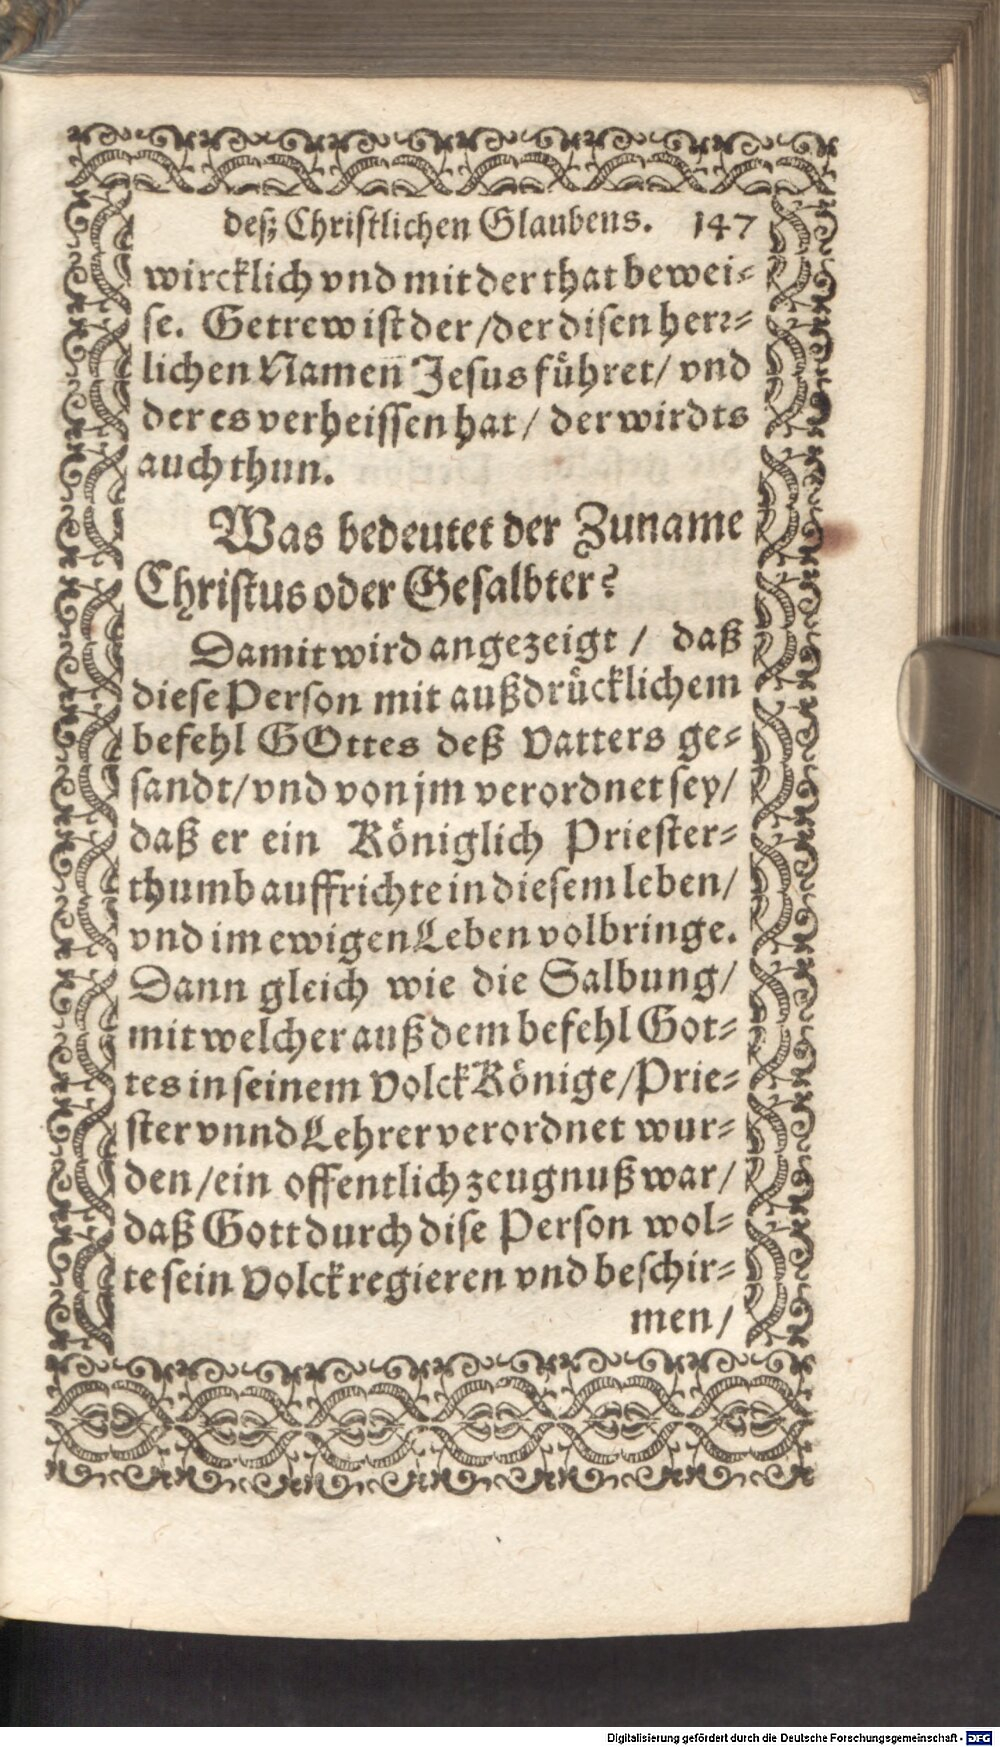 deß Christlichen Glaubens. 147
wircklich vnd mit der that bewei-
se. Getrew ist der / der disen herr-
lichen Namen Jesus führet / vnd
der es verheissen hat / der wirdts
auch thun.
Was bedeutet der Zuname
Christus oder Gesalbter?
Damit wird angezeigt / daß
diese Person mit außdrücklichem
befehl GOttes deß Vatters ge-
sandt / vnd von jm verordnet sey /
daß er ein Königlich Priester-
thumb auffrichte in diesem leben /
vnd im ewigen Leben volbringe.
Dann gleich wie die Salbung /
mit welcher auß dem befehl Got-
tes in seinem Volck Könige / Prie-
ster vnnd Lehrer verordnet wur-
den / ein offentlich zeugnuß war /
daß Gott durch dise Person wol-
te sein Volck regieren vnd beschir-
men /
Digitalisierung gefördert durch die Deutsche Forschungsgemeinschaft - DFG